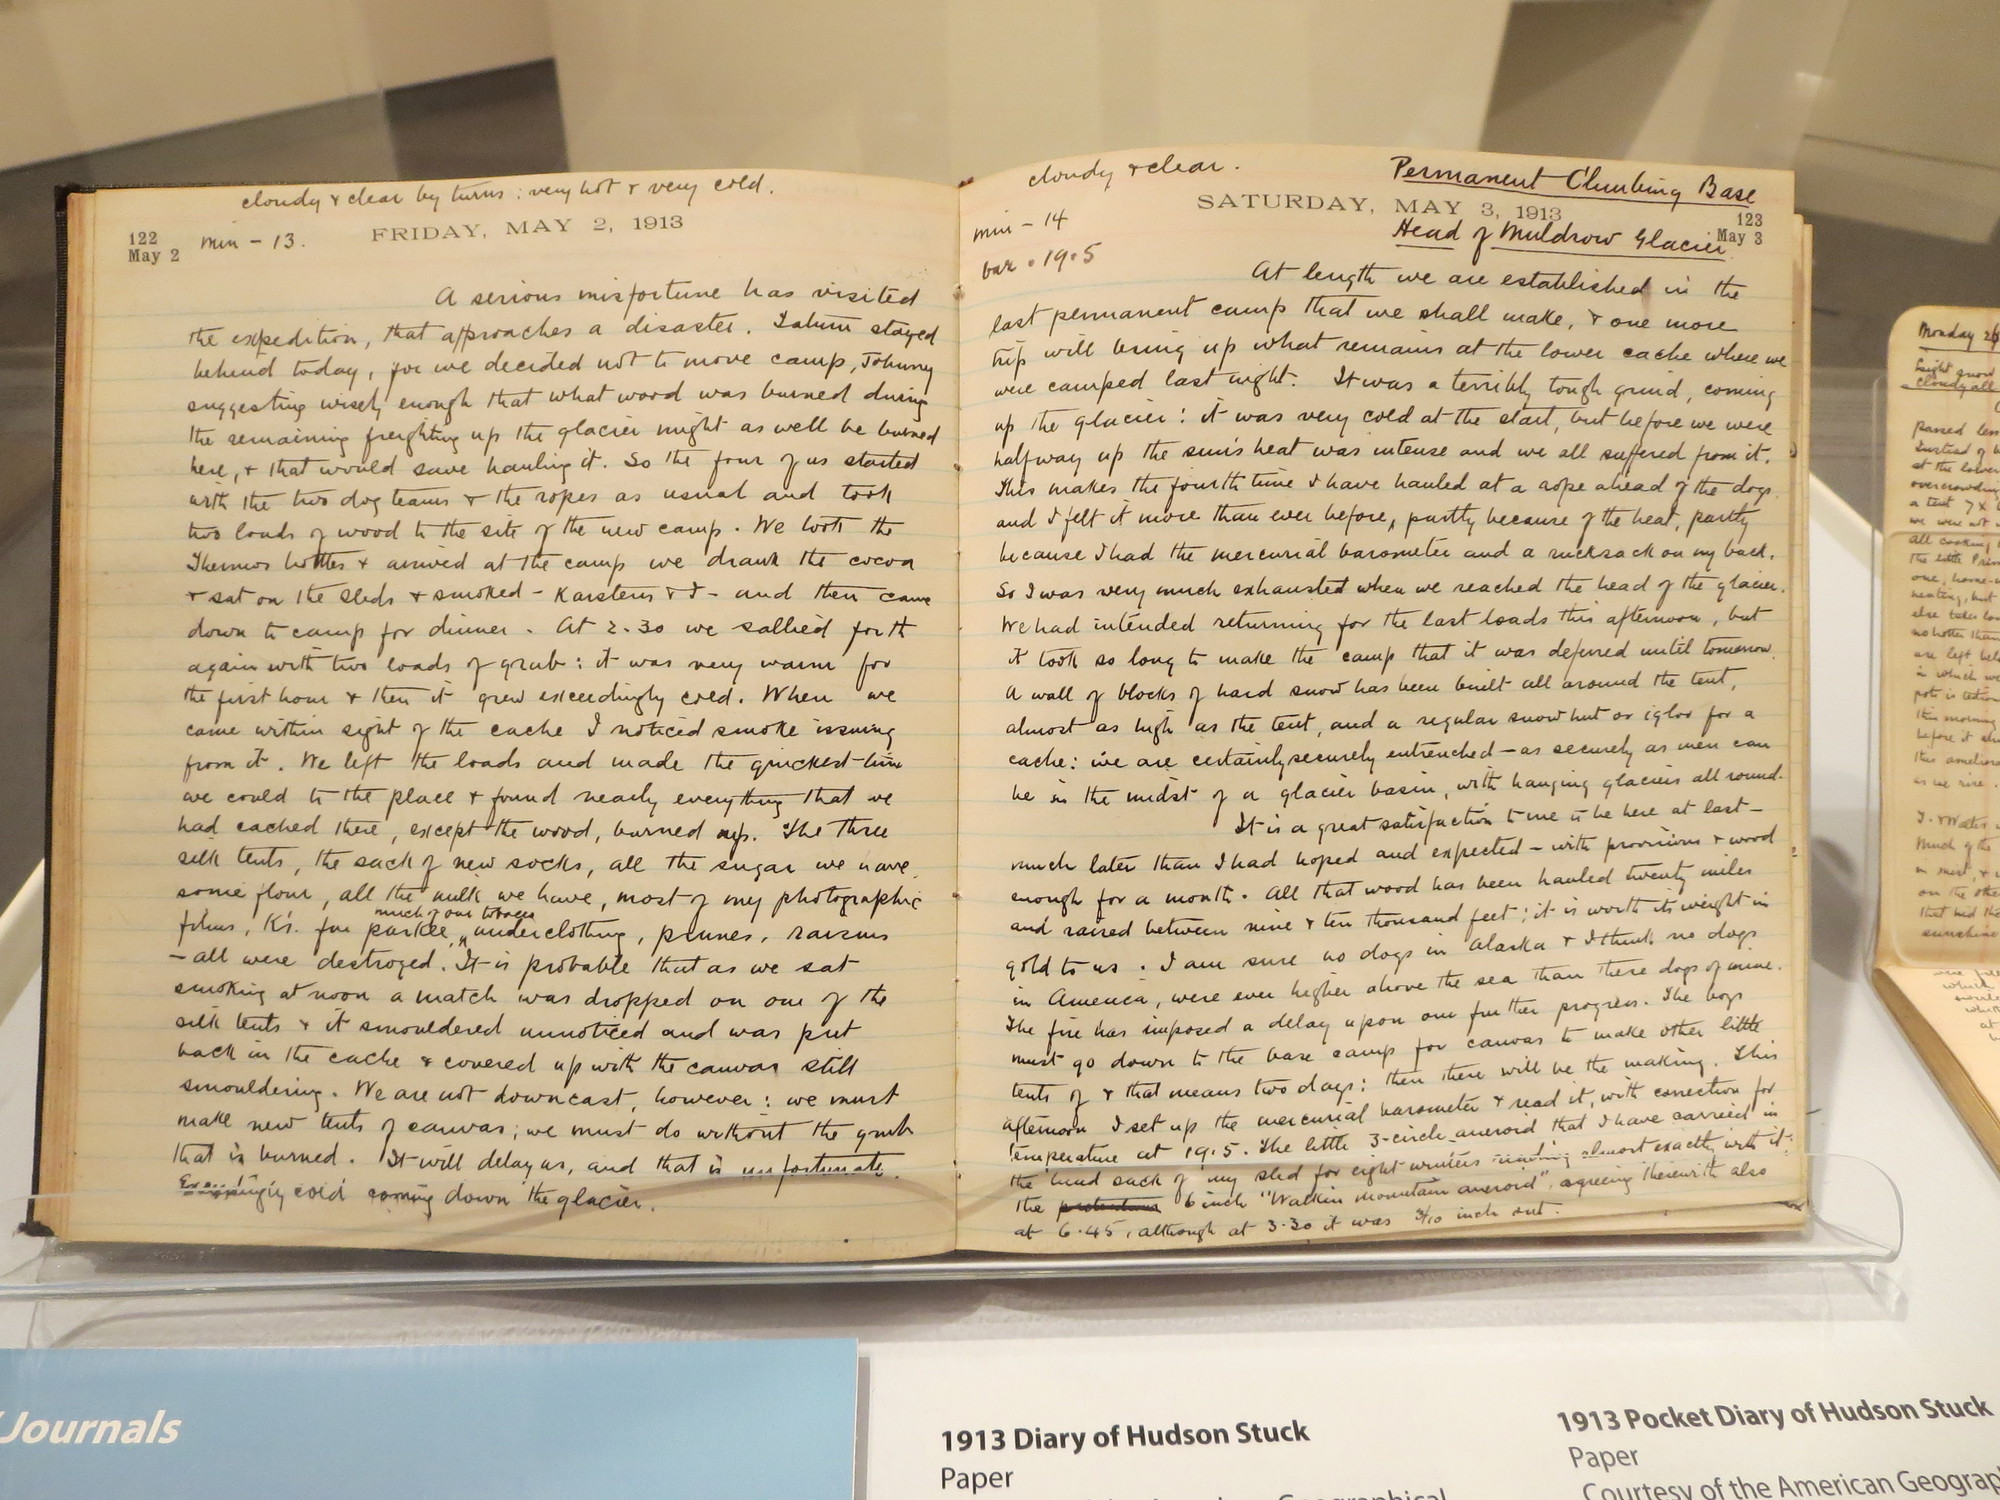 cloudy & clear by turns : very hot & very cold.
122
May 2
min - 13.
FRIDAY, MAY 2, 1913
A serious misfortune has visited
the expedition, that approaches a disaster. Tatum stayed
behind today, for we decided not to move camp, Johnny
suggesting wisely enough that what wood was burned during
the remaining freighting up the glacier might as well be burned
here, & that would save hauling it. So the four of us started
with the two dog teams & the ropes as usual and took
two loads of wood to the site of the new camp. We took the
Thermos bottles & arrived at the camp we drank the cocoa
& sat on the sleds & smoked - Karstens & I - and then came
down to camp for dinner. At 2.30 we sallied forth
again with two loads of grub: it was very warm for
the first hour & then it grew exceedingly cold. When we
came within sight of the cache I noticed smoke issuing
from it. We left the loads and made the quickest time
we could to the place & found nearly everything that we
had cached there, except the wood, burned up. The three
silk tents, the sack of new socks, all the sugar we have,
some flour, all the milk we have, most of my photographic
much of our tobacco
films, K's. fur parkee, underclothing, prunes, raisins
- all were destroyed. It is probable that as we sat
smoking at noon a match was dropped on one of the
silk tents & it smouldered unnoticed and was put
back in the cache & covered up with the canvas still
smouldering. We are not downcast, however: we must
make new tents of canvas; we must do without the grub
that is burned. It will delay us, and that is unfortunate.
cold coming down the glacier.
cloudy & clear.
Permanent Climbing Base
SATURDAY, MAY 3, 1913
123
May 3
min - 14
Head of Muldrow Glacier
bar. 19.5
At length we are established in the
last permanent camp that we shall make, & one more
trip will bring up what remains at the lower cache where we
were camped last night. It was a terribly tough grind, coming
up the glacier: it was very cold at the start, but before we were
halfway up the sun's heat was intense and we all suffered from it.
This makes the fourth time I have hauled at a rope ahead of the dogs
and I felt it more than ever before, partly because of the heat, partly
because I had the mercurial barometer and a rucksack on my back.
So I was very much exhausted when we reached the head of the glacier.
We had intended returning for the last loads this afternoon, but
it took so long to make the camp that it was deferred until tomorrow.
A wall of blocks of hard snow has been built all around the tent,
almost as high as the tent, and a regular snow hut or igloo for a
cache: we are certainly securely entrenched - as securely as men can
be in the midst of a glacier basin, with hanging glaciers all round.
It is a great satisfaction to me to be here at last -
much later than I had hoped and expected - with provisions & wood
enough for a month. All that wood has been hauled twenty miles
and raised between nine & ten thousand feet; it is worth its weight in
gold to us. I am sure no dogs in Alaska & I think no dogs
in America, were ever higher above the sea than these dogs of mine.
The fire has imposed a delay upon our further progress. The boys
must go down to the base camp for canvas to make other little
tents of & that means two days: then there will be the making. This
afternoon I set up the mercurial barometer & read it, with correction for
temperature at 19.5. The little 3-circle aneroid that I have carried in
the hind sack of my sled for eight winters reading almost exactly with it:
the 6 inch "Watkin mountain aneroid", agreeing therewith also
at 6.45, although at 3.30 it was 3/10 inch out.
Monday 26
Light snow
cloudy all
passed
Instead of
at the lower
overcrowding
a tent 7 x
we were not
all cooking
the little
one, home
heating, but
else takes
no hotter than
are left
in which we
pot is
this morning
before it
this
as we rise.
Much of the
in mist, &
on the other
that hid the
sunshine
which
at
Journals
1913 Diary of Hudson Stuck
Paper
Geographical
1913 Pocket Diary of Hudson Stuck
Paper
Courtesy of the American Geograp